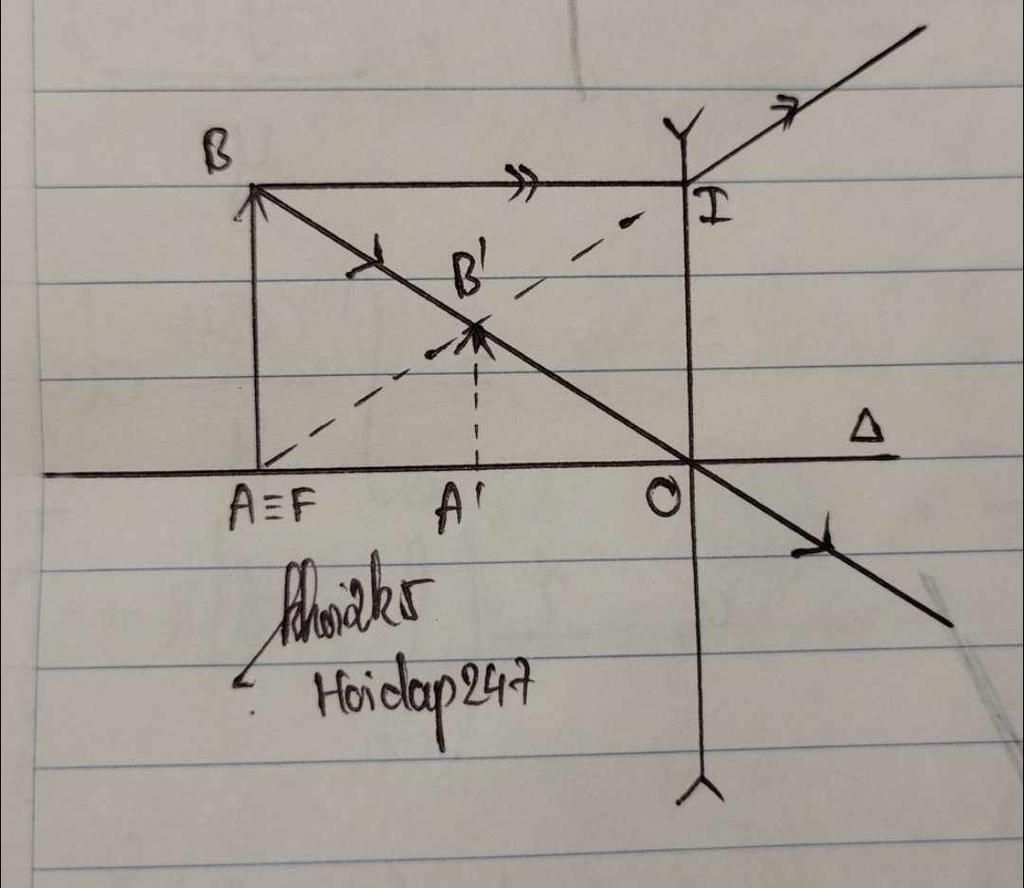 B
I
B'
Δ
A≡F
A'
O
khoi2k5
Hoidap247